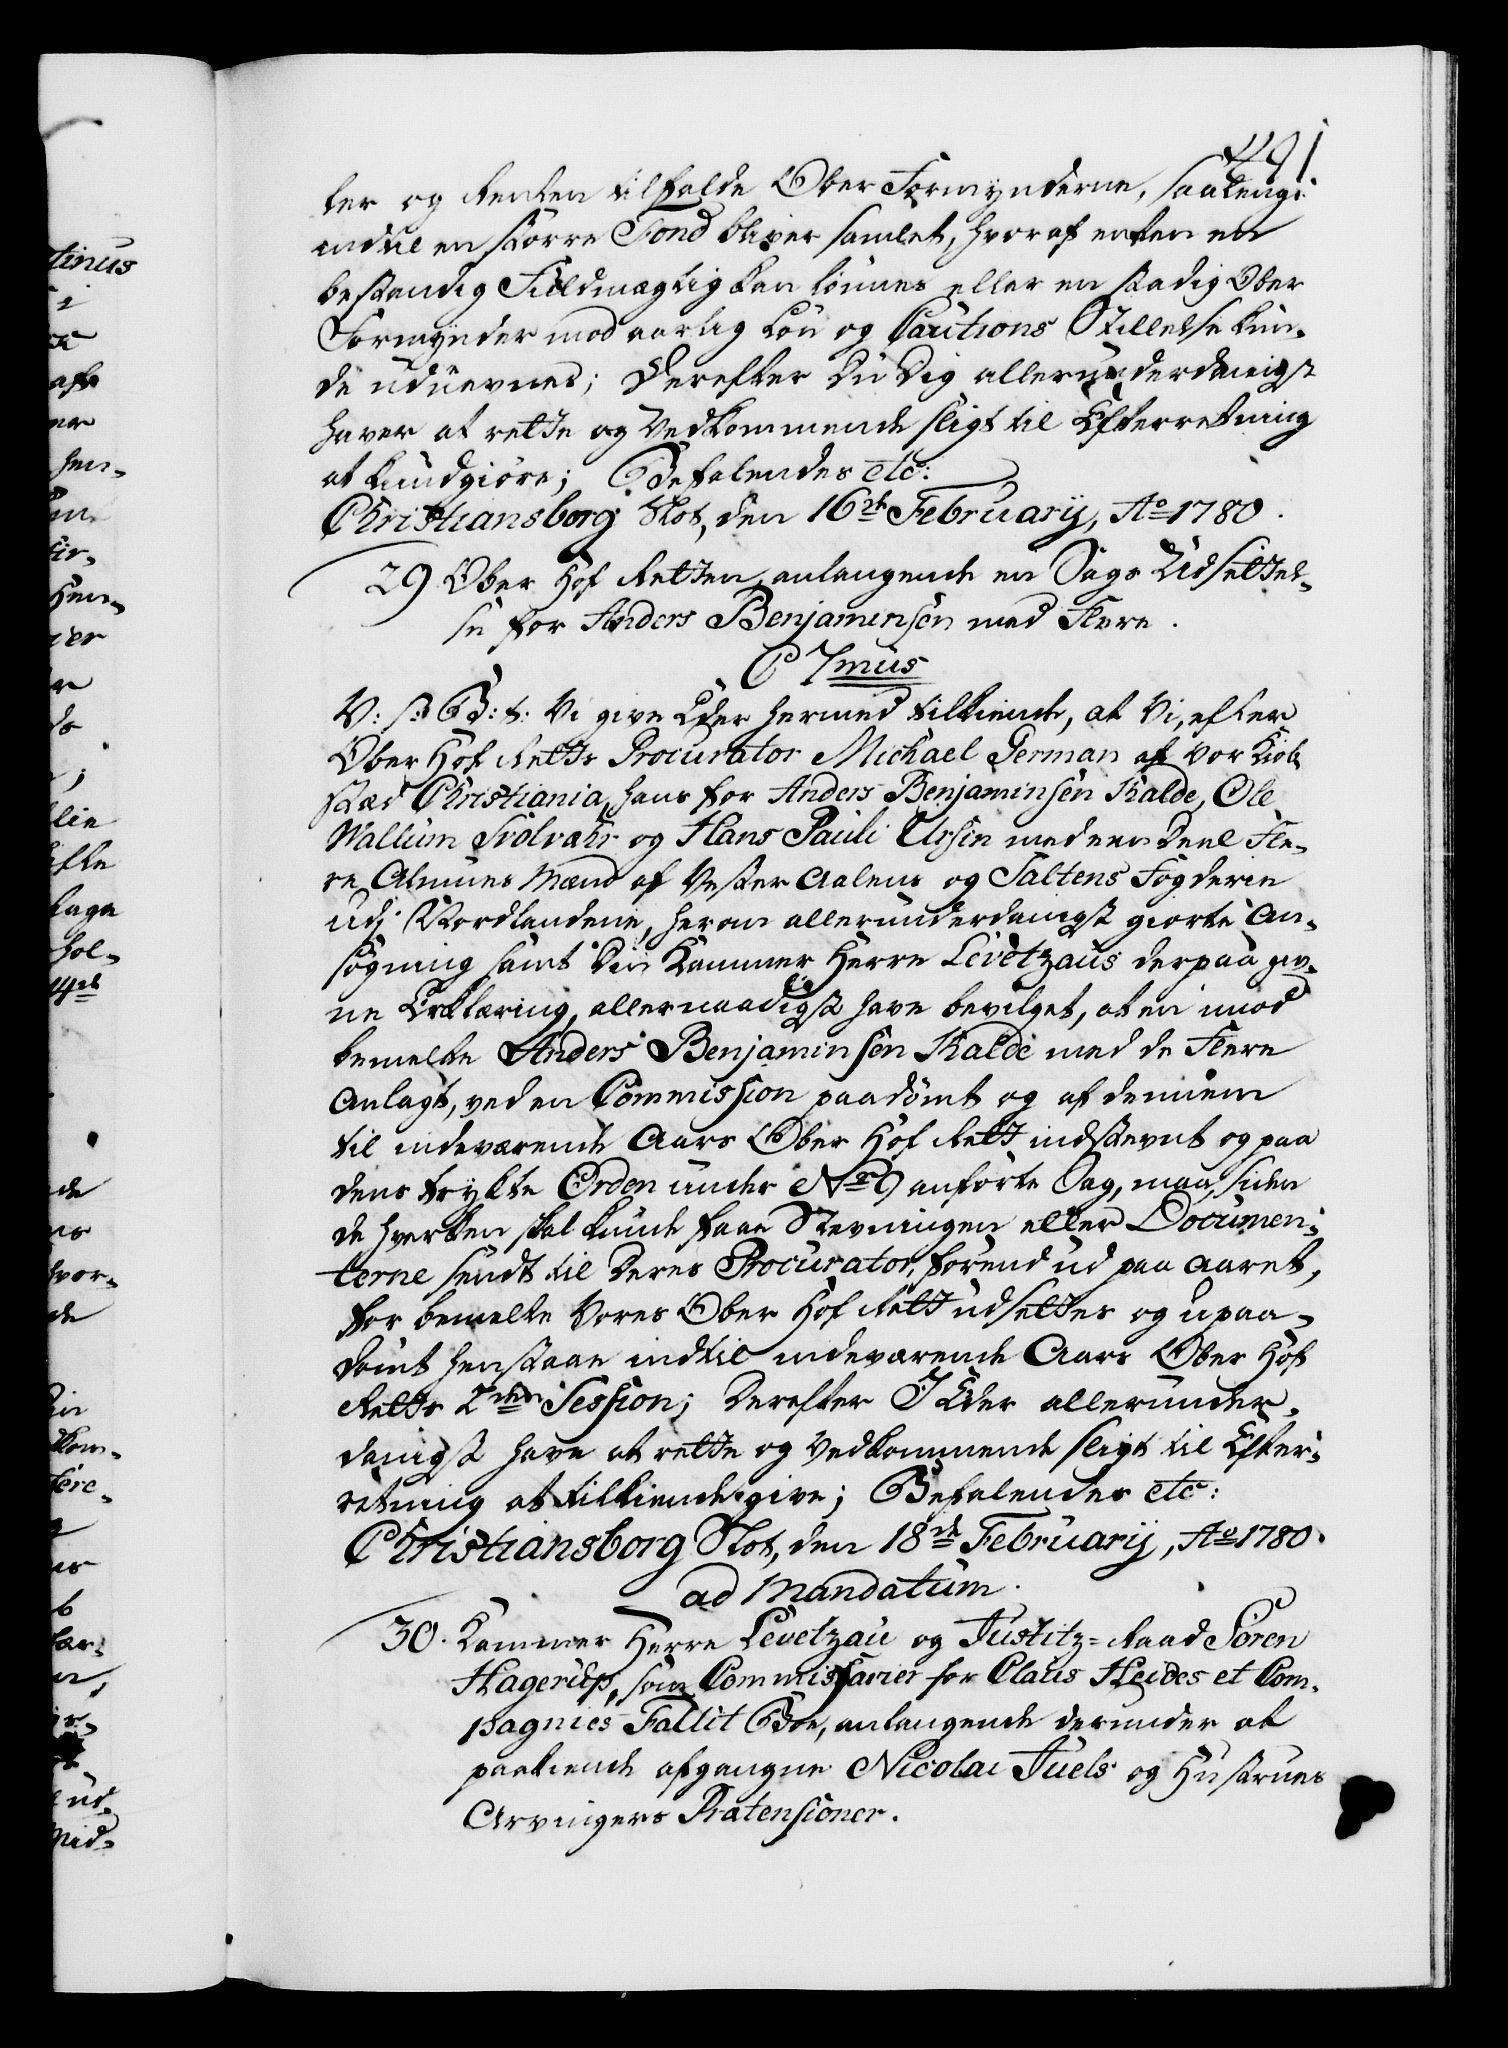 491
ler og Renten tilfalde Ober Formynderne, saalenge
indtil en større Fond bliver samlet, hvoraf enten en
bestandig Fuldmægtig kan lønnes eller en stadig Ober
Formynder mod aarlig Løn og Cautions Stillelse kun-
de udnevnes; Derefter Du Dig allerunderdanigst
haver at rette og Vedkommende sligt til Efterretning
at kundgiöre; Befalendes etc:
Christiansborg Slot, den 16de Februarij, Ao 1780.
29 Ober Hof Retten, anlangende en Sags Udsettel-
se for Anders Benjaminsen med Flere.
C 7mus
V: s: G: t: Vi give Eder hermed tilkiende, at Vi, efter
Ober Hof Retts Procurator Michael German af vor Kiöb-
stæd Christiania, hans for Anders Benjaminsen Kalde, Ole
Wallum Svolvahr og Hans Pauli Ursin med een Deel Fle-
re Almues Mænd af Vester Aalens og Saltens Fogderie
udj Nordlandene, herom allerunderdanigst giorte An-
søgning samt Din Kammer Herre Levetzaus derpaa giv-
ne Erklæring, allernaadigst have bevilget, at en imod
bemelte Anders Benjaminsen Kalde med de Flere
anlagt, ved en Commission paadömt og af dennem
til indeværende Aars Ober Hof Rett indstevnt og paa
dens trykte Orden under No 9 anförte Sag, maa, siden
de hverken skal kunde faae Stevningen eller Documen-
terne sendt til Deres Procurator, forend ud paa Aaret,
for bemelte Vores Ober Hof Rett udsettes og upaa-
dömt henstaae indtil indeværende Aars Ober Hof
Retts 2den Session; Derefter I Eder allerunder-
danigst have at rette og Vedkommende sligt til Efter-
retning at tilkiendegive; Befalendes etc:
Christiansborg Slot, den 18de Februarij, Ao 1780.
ad Mandatum.
30. Kammer Herre Levetzau og Justitz-Raad Sören
Hagerup, som Commissarier for Claus Heides et Com-
pagnies Fallit Boe, anlangende derunder at
paakiende afgangne Nicolai Juels og Hustrues
Arvingers Prætensioner.